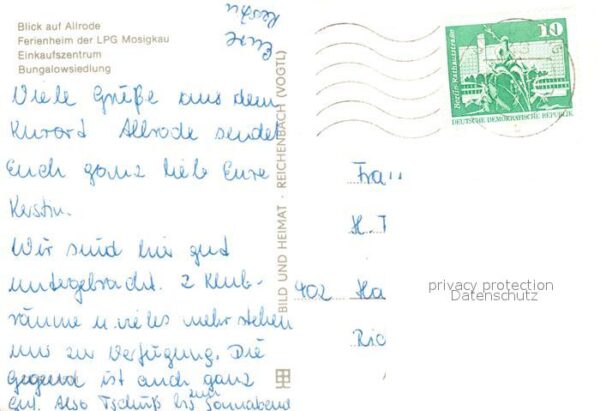 Blick auf Allrode
Ferienheim der LPG Mosigkau
Einkaufszentrum
Bungalowsiedlung
Eure
Kerstin
Viele Grüße aus dem
Kurort Allrode sendet
Euch ganz liebe Eure
Kerstin.
Wir sind hier gut
untergebracht. 2 Klub-
räume u. vieles mehr stehen
uns zur Verfügung. Die
Gegend ist auch ganz
gut. Also Tschüß bis zum Sonnabend
BILD UND HEIMAT · REICHENBACH (VOGTL)
10
Berlin, Rathausstraße
DEUTSCHE DEMOKRATISCHE REPUBLIK
Frau
H. T
402 Ha
Ric
privacy protection
Datenschutz